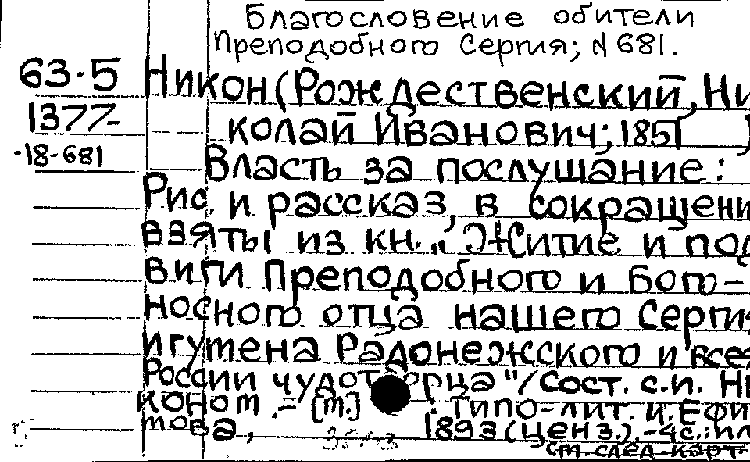 Благословение обители
Преподобного Сергия; N 681.
63-5 Никон (Рождественский, Ни
1377- колай Иванович; 1851 )
-18-681 Власть за послушание:
Рис. и рассказ, в сокращени
взяты из кн. „Житие и под
виги Преподобного и Бого-
носного отца нашего Серги
игумена Радонежского и всея
России чудотворца"/Сост. с.и. Ни
коном .- [М.] : типо-лит. И. Ефи
мова, 1893 (ценз.).-4с.:ил
см. след. карт